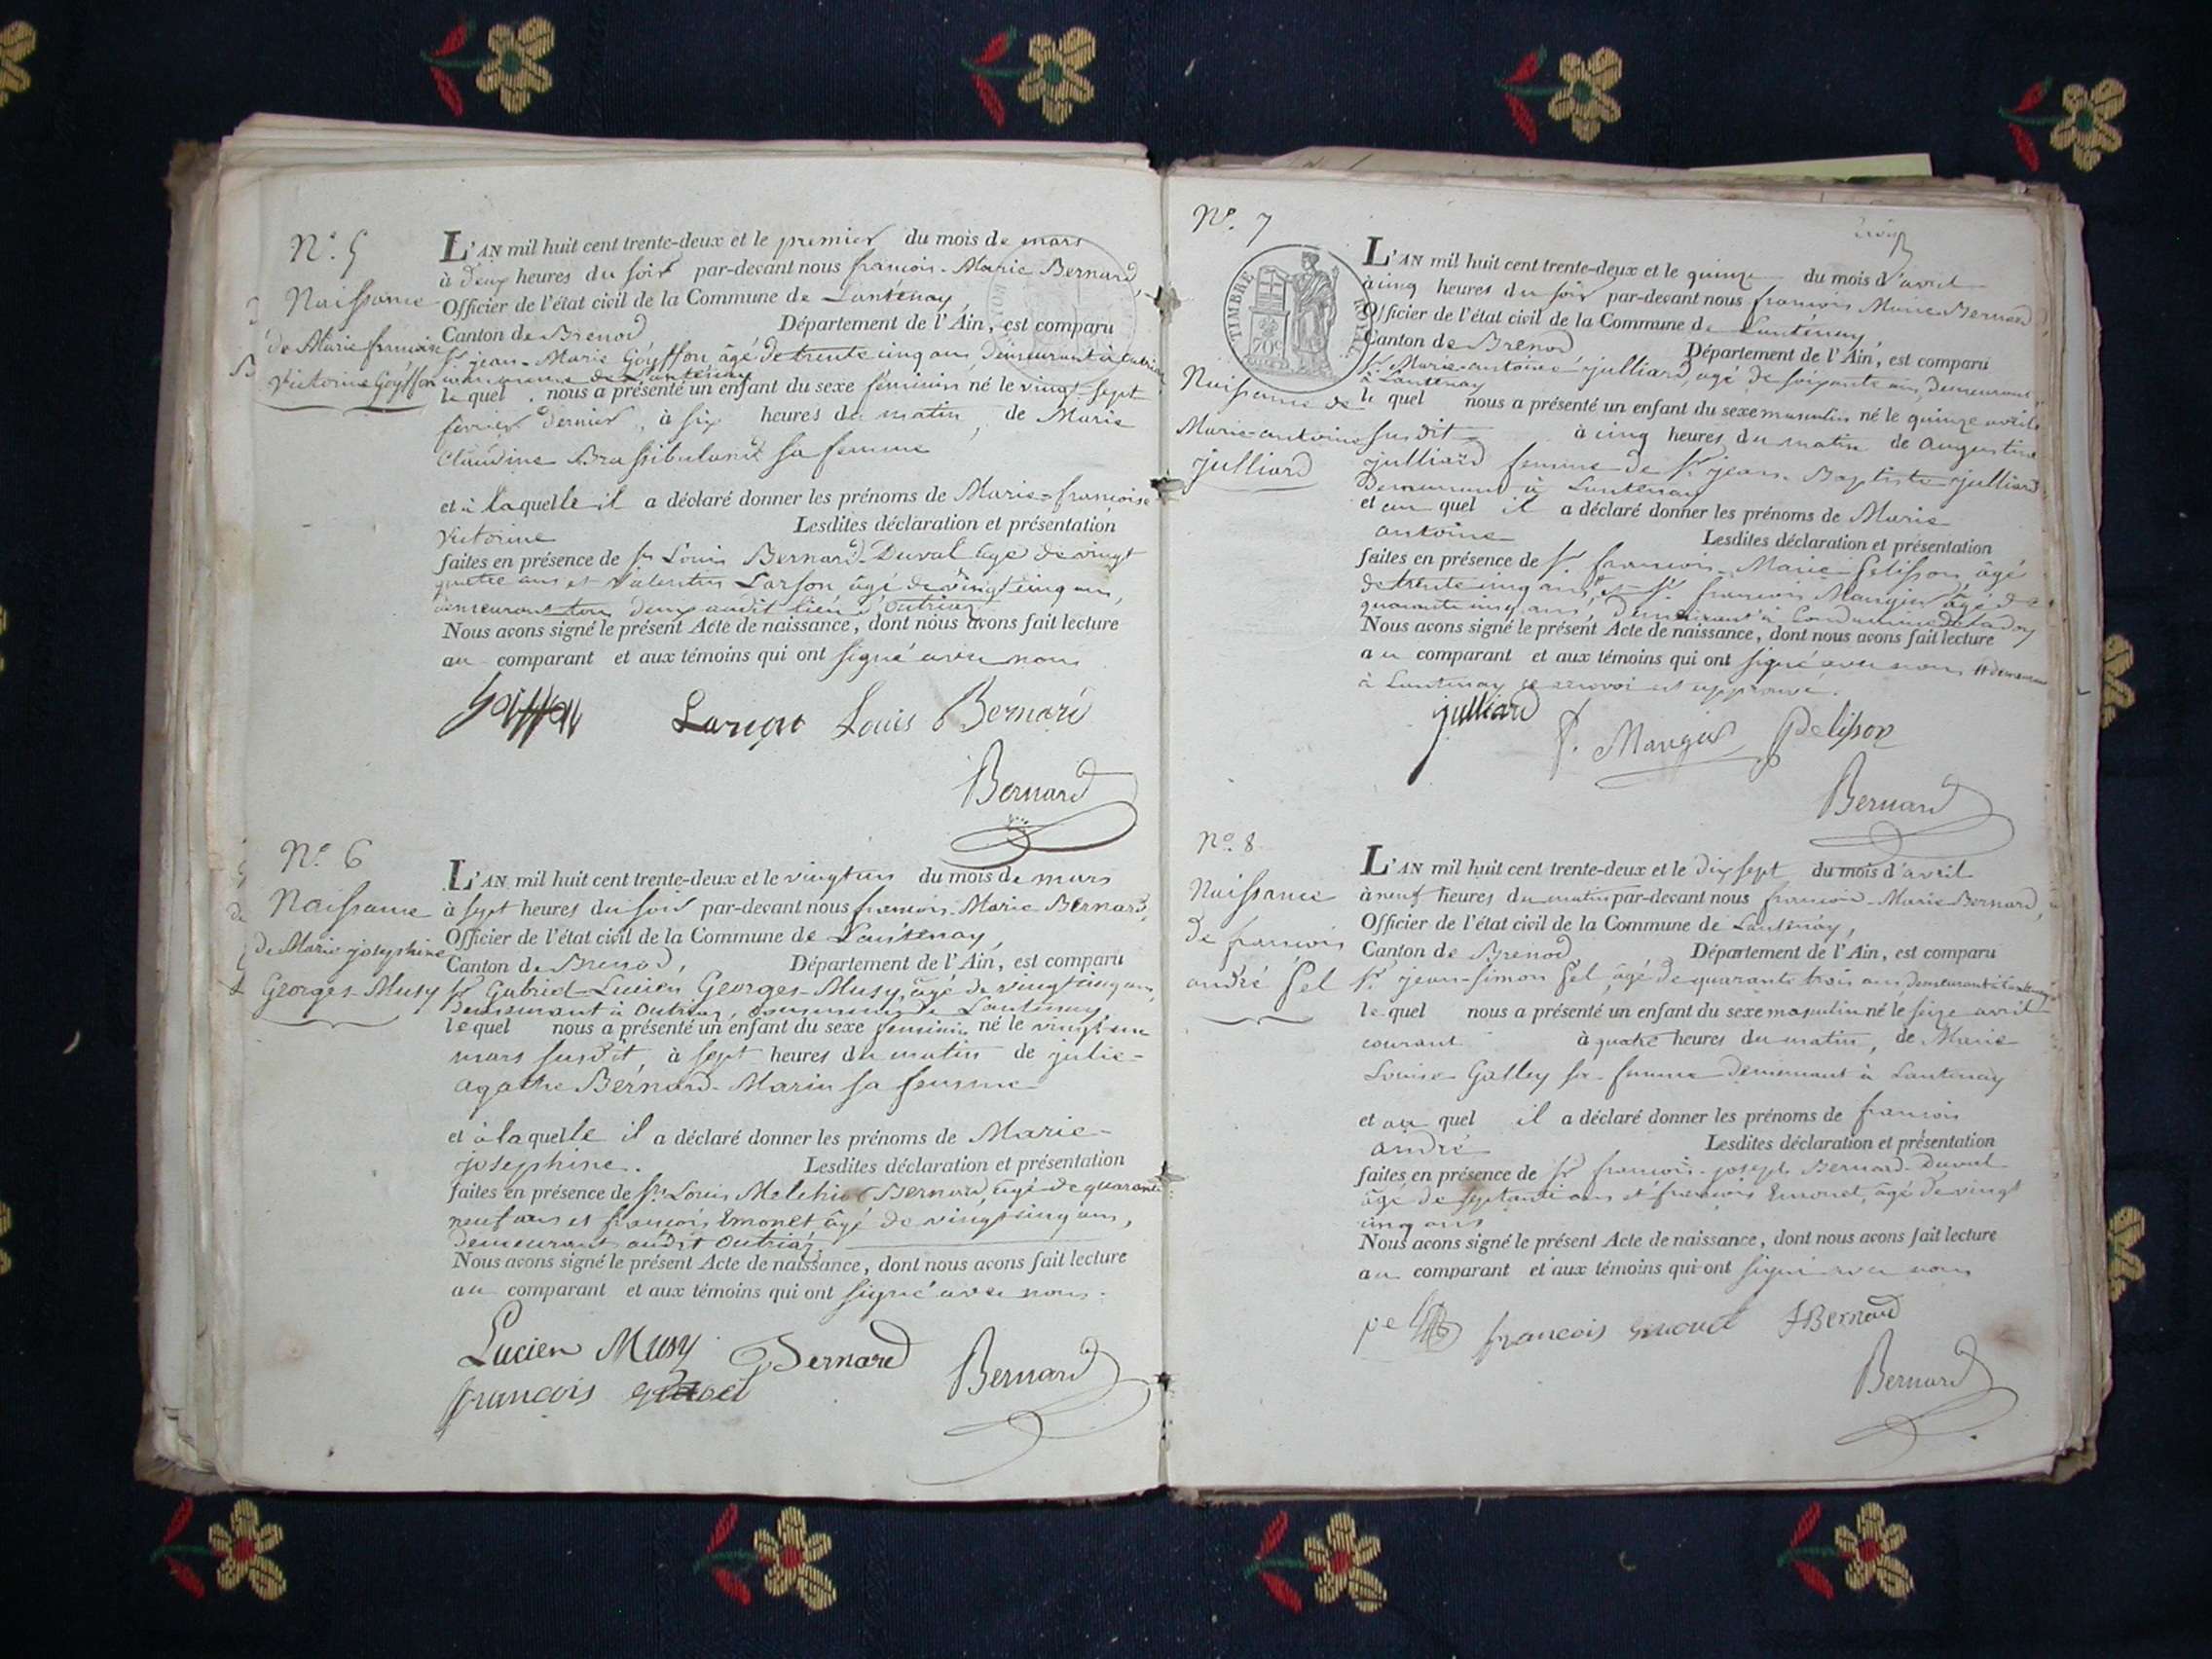 N.º 5
Naissance
de Marie francoise
Victorine Goÿffon
L'AN mil huit cent trente-deux et le premier du mois de mars
à deux heures du soir par-devant nous francois-Marie Bernard,
Officier de l'état civil de la Commune de Lantenay,
Canton de Brenod Département de l'Ain, est comparu
Sr. jean-Marie Goÿffon âgé de trente cinq ans, demeurant à outriaz
commune de Lantenay
le quel nous a présenté un enfant du sexe féminin né le vingt-sept
février dernier, à six heures du matin, de Marie
Claudine Brassibuland sa femme
et à laquelle il a déclaré donner les prénoms de Marie-françoise
Victorine Lesdites déclaration et présentation
faites en présence de Sr. Louis Bernard-Duval âgé de vingt
quatre ans et Valentin Larson, âgé de vingt cinq ans,
demeurant tous deux audit lieu d'outriaz
Nous avons signé le présent Acte de naissance, dont nous avons fait lecture
au comparant et aux témoins qui ont signé avec nous
Goiffon Larson Louis Bernard
Bernard
N.º 6
Naissance
de Marie josephine
Georges-Musy
L'AN mil huit cent trente-deux et le vingt un du mois de mars
à sept heures du soir par-devant nous francois-Marie Bernard,
Officier de l'état civil de la Commune de Lantenay,
Canton de Brenod, Département de l'Ain, est comparu
Sr. Gabriel-Lucien Georges-Musy, âgé de vingt cinq ans,
demeurant à Outriaz, commune de Lantenay,
le quel nous a présenté un enfant du sexe feminin né le vingt un
mars susdit, à sept heures du matin de julie-
agathe Bernard-Marin sa femme
et à laquelle il a déclaré donner les prénoms de Marie-
josephine. Lesdites déclaration et présentation
faites en présence de Sr. Louis Melchior Bernard, âgé de quarante
neuf ans et françois Emonet âgé de vingt cinq ans,
demeurant audit Outriaz,
Nous avons signé le présent Acte de naissance, dont nous avons fait lecture
au comparant et aux témoins qui ont signé avec nous.
Lucien Musy Bernard Bernard
francois
N.º 7
TIMBRE ROYAL
70c
Naissance de
Marie-antoine
julliard
L'AN mil huit cent trente-deux et le quinze du mois d'avril
à cinq heures du soir par-devant nous francois Marie Bernard,
Officier de l'état civil de la Commune de Lantenay,
Canton de Brenod Département de l'Ain, est comparu
Sr. Marie-antoine julliard, agé de soixante ans, demeurant
à Lantenay
le quel nous a présenté un enfant du sexe masculin né le quinze avril
susdit à cinq heures du matin de augustine
julliard femme de Sr. jean-Baptiste julliard
Demeurant à Lantenay
et au quel il a déclaré donner les prénoms de Marie
antoine Lesdites déclaration et présentation
faites en présence de Sr. francois-Marie Pelisson âgé
de trente cinq ans et Sr. francois Mangin âgé de
quarante cinq ans, demeurant à
Nous avons signé le présent Acte de naissance, dont nous avons fait lecture
au comparant et aux témoins qui ont signé avec nous # demeurant
à Lantenay ce renvoi est approuvé.
julliard f. Mangin Pelisson
Bernard
N.º 8
Naissance
de francois
andré Pel
L'AN mil huit cent trente-deux et le dix sept du mois d'avril
à neuf heures du matin par-devant nous francois-Marie Bernard,
Officier de l'état civil de la Commune de Lantenay,
Canton de Brenod Département de l'Ain, est comparu
Sr. jean-simon Pel, âgé de quarante trois ans demeurant à Lantenay
le quel nous a présenté un enfant du sexe masculin né le seize avril
courant à quatre heures du matin, de Marie
Louise Galley sa femme demeurant à Lantenay
et au quel il a déclaré donner les prénoms de francois
andré Lesdites déclaration et présentation
faites en présence de Sr. francois-joseph Bernard-Duval
âgé de septante ans et francois Emonet, âgé de vingt
cinq ans
Nous avons signé le présent Acte de naissance, dont nous avons fait lecture
au comparant et aux témoins qui ont signé avec nous
pel francois Emonet JBernard
Bernard